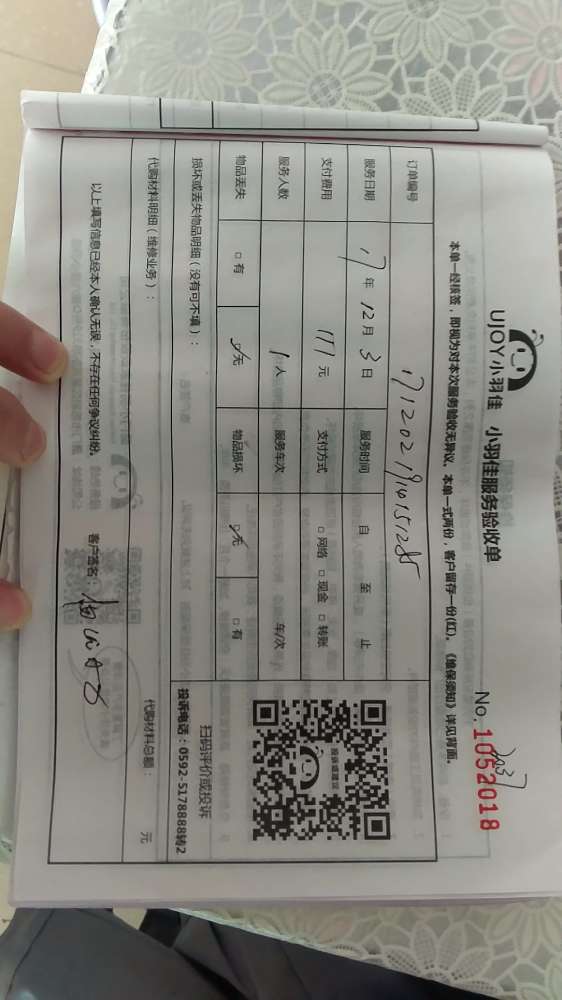 UJOY小羽佳 小羽佳服务验收单
No. 1052018
本单一经接签，即视为对本次服务验收无异议。本单一式两份，客户留存一份(红)。《维保须知》详见背面。
订单编号
服务日期 17 年 12 月 3 日 服务时间 自 至 止
支付费用 111 元 支付方式 □ 网络 □ 现金 □ 转账
服务人数 1 人 服务车次 车/次
物品丢失 □ 有 ☑ 无 物品损坏 ☑ 无 □ 有
投诉或建议
扫码评价或投诉
投诉电话：0592-5178888转2
损坏或丢失物品明细（没有可不填）：
代购材料明细（维修业务）： 代购材料总额： 元
以上填写信息已经本人确认无误，不存在任何争议纠纷。 客户签名：